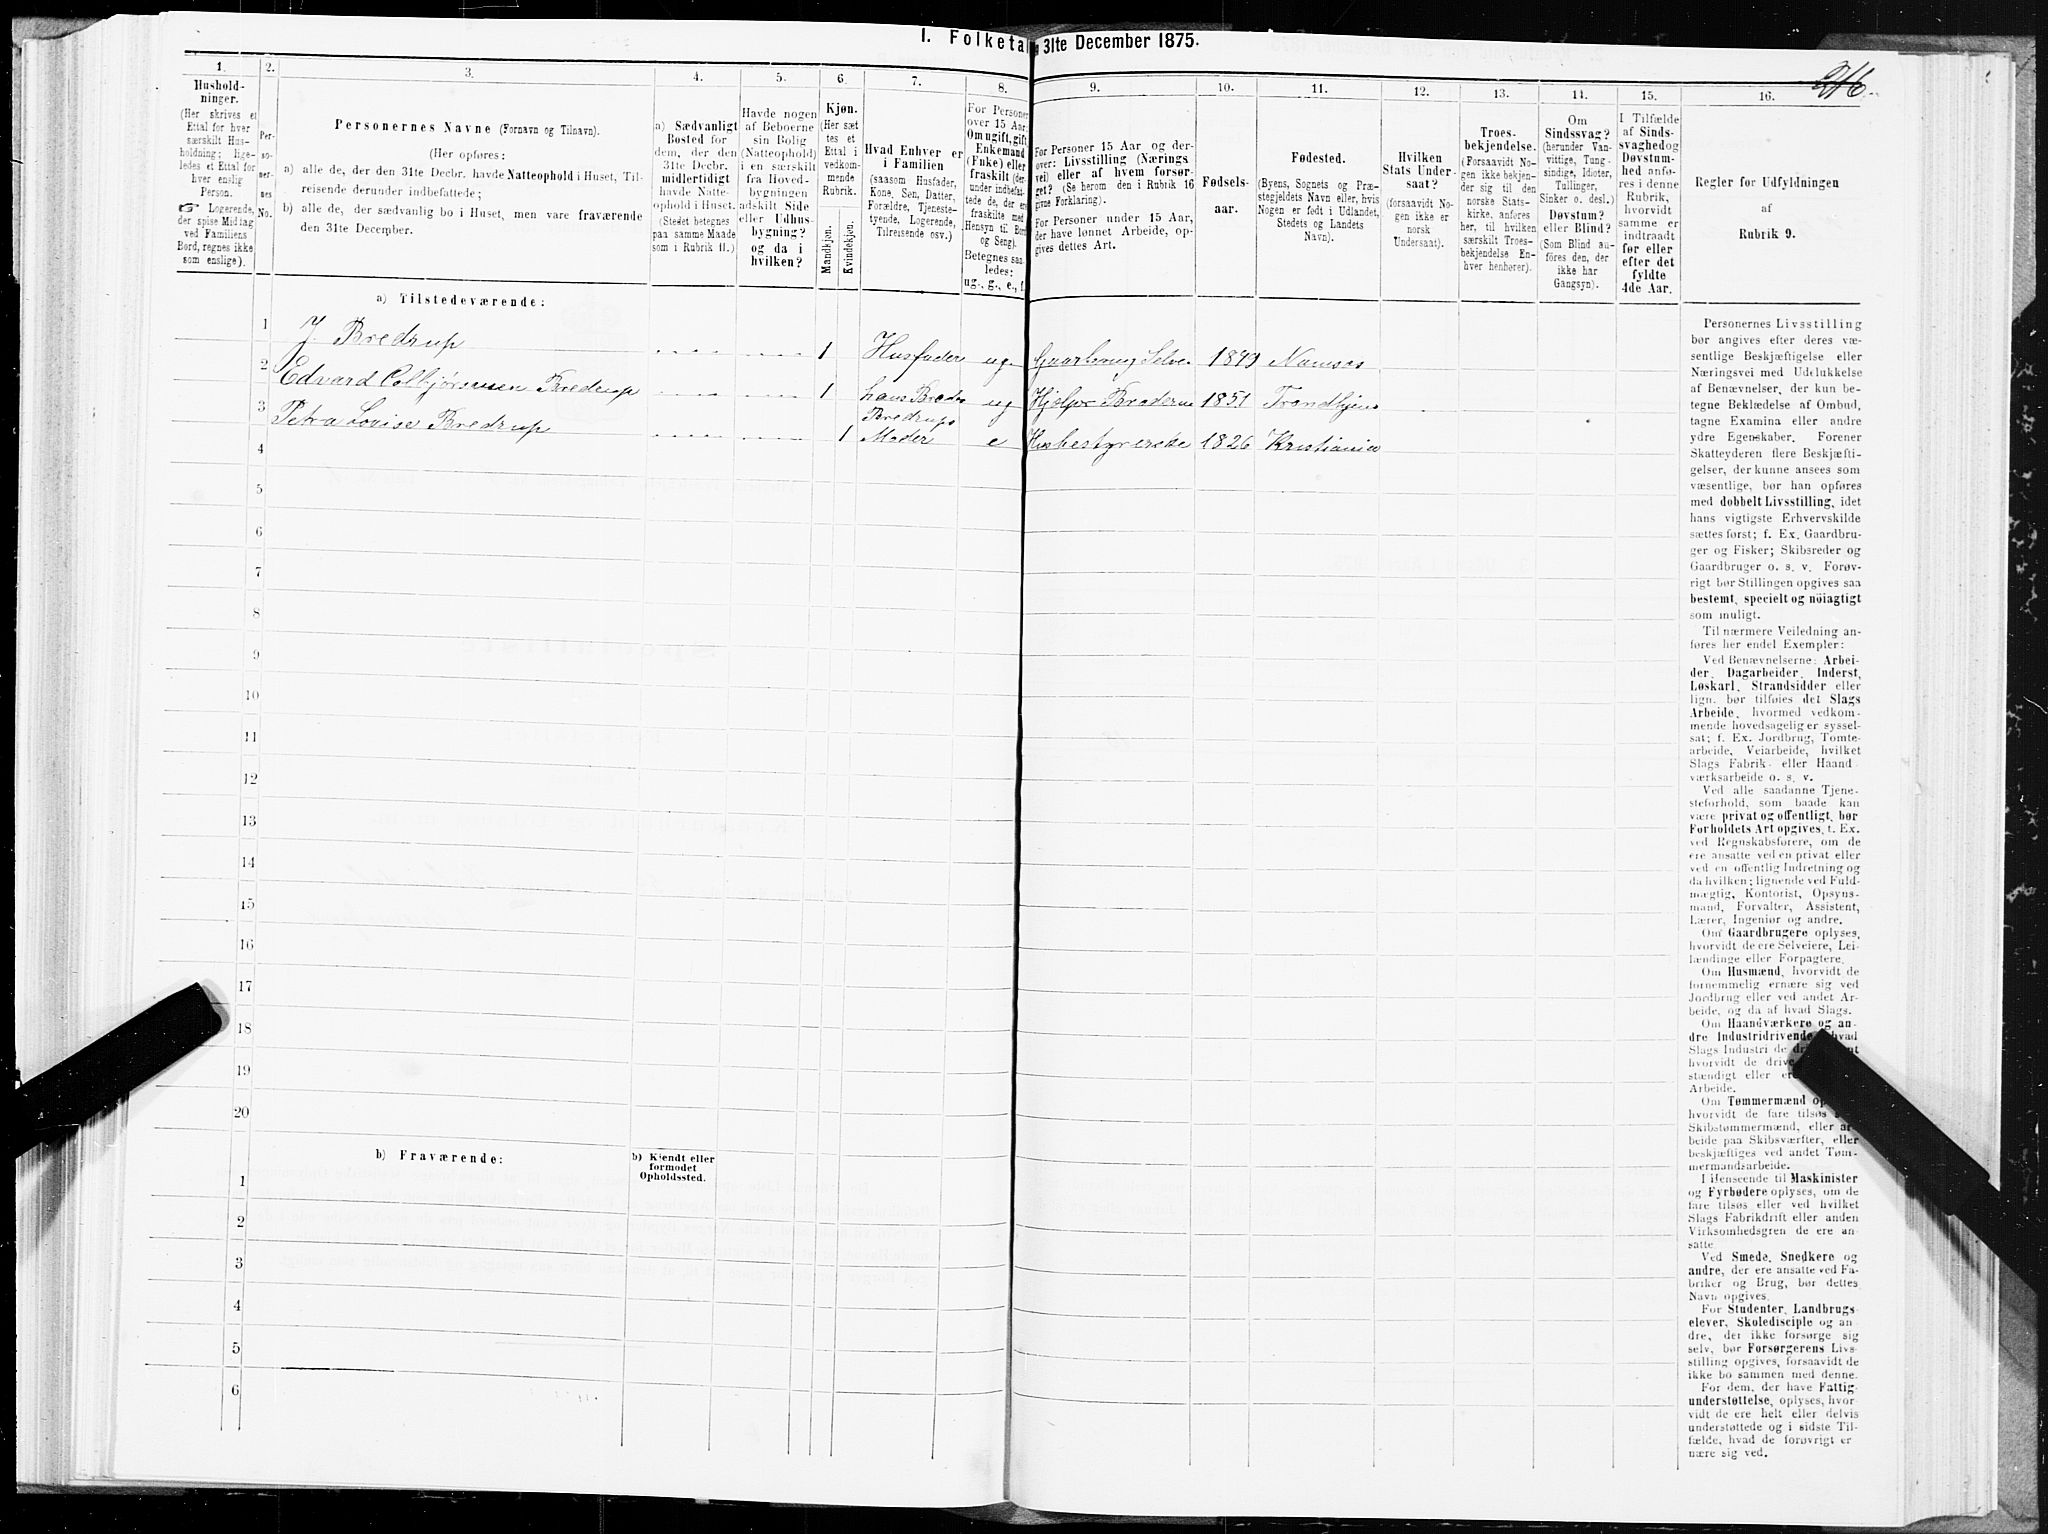 I. Folketal 31te December 1875.
216
1. 2. 3. 4. 5. 6. 7. 8. 9. 10. 11. 12. 13. 14. 15. 16.
Hushold-
ninger.
(Her skrives et
Ettal for hver
særskilt Hus-
holdning; lige-
ledes et Ettal for
hver enslig
Person.
☞ Logerende,
der spise Middag
ved Familiens
Bord, regnes ikke
som enslige).
Per-
so-
ner-
nes
No.
Personernes Navne (Fornavn og Tilnavn).
(Her opføres:
a) alle de, der den 31te Decbr. havde Natteophold i Huset, Til-
reisende derunder indbefattede;
b) alle de, der sædvanlig bo i Huset, men vare fraværende
den 31te December.
a) Sædvanligt
Bosted for
dem, der den
31te Decbr.
midlertidigt
havde Natte-
ophold i Huset.
(Stedet betegnes
paa samme Maade
som i Rubrik 11.)
Havde nogen
af Beboerne
sin Bolig
(Natteophold)
i en særskilt
fra Hoved-
bygningen
adskilt Side
eller Udhus-
bygning?
og da i
hvilken?
Kjøn.
(Her sæt
tes et
Ettal i
vedkom-
mende
Rubrik.
Mandkjøn.
Kvindekjøn.
Hvad Enhver er
i Familien
(saasom Husfader,
Kone, Søn, Datter,
Forældre, Tjeneste-
tyende, Logerende,
Tilreisende osv.)
For Personer
over 15 Aar:
Om ugift, gift,
Enkemand
(Enke) eller
fraskilt (der-
under indbefat-
tede de, der ere
fraskilte med
Hensyn til Bord
og Seng).
Betegnes saa-
ledes:
ug., g., e., f.
For Personer 15 Aar og der-
over: Livsstilling (Nærings
vei) eller af hvem forsør-
get? (Se herom den i Rubrik 16
givne Forklaring).
For Personer under 15 Aar,
der have lønnet Arbeide, op-
gives dettes Art.
Fødsels-
aar.
Fødested.
(Byens, Sognets og Præ-
stegjeldets Navn eller, hvis
Nogen er født i Udlandet,
Stedets og Landets
Navn).
Hvilken
Stats Under-
saat?
(forsaavidt No-
gen ikke er
norsk
Undersaat).
Troes-
bekjendelse.
(Forsaavidt No-
gen ikke bekjen-
der sig til den
norske Stats-
kirke, anføres
her, til hvilken
særskilt Troes-
bekjendelse En-
hver henhører).
Om
Sindssvag?
(herunder Van-
vittige, Tung-
sindige, Idioter,
Tullinger,
Sinker o. desl.)
Døvstum?
eller Blind?
(Som Blind an-
føres den, der
ikke har
Gangsyn).
I Tilfælde
af Sinds-
svaghed og
Døvstum-
hed anfø-
res i denne
Rubrik,
hvorvidt
samme er
indtraadt
før eller
efter det
fyldte
4de Aar.
Regler for Udfyldningen
af
Rubrik 9.
a) Tilstedeværende:
1 J. Bredrup 1 Husfader ug. Gaarbrug Selve. 1849 Namsos
2 Edvard Colbjørnsen Bredrup 1 hans Broder ug Hjelper Broderen 1851 Trondhjem
3 Petra Louise Bredrup 1 Bredrups Moder e Husbestyrerske 1826 Kristiania
4
5
6
7
8
9
10
11
12
13
14
15
16
17
18
19
20
b) Fraværende:
b) Kjendt eller
formodet
Opholdssted.
1
2
3
4
5
6
Personernes Livsstilling
bør angives efter deres væ-
sentlige Beskjæftigelse eller
Næringsvei med Udelukkelse
af Benævnelser, der kun be-
tegne Beklædelse af Ombud,
tagne Examina eller andre
ydre Egenskaber. Forener
Skatteyderen flere Beskjæfti-
gelser, der kunne ansees som
væsentlige, bør han opføres
med dobbelt Livsstilling, idet
hans vigtigste Erhvervskilde
sættes først; f. Ex. Gaardbru-
ger og Fisker; Skibsreder og
Gaardbruger o. s. v. Forøv-
rigt bør Stillingen opgives saa
bestemt, specielt og nöiagtigt
som muligt.
Til nærmere Veiledning an-
føres her endel Exempler:
Ved Benævnelserne: Arbei-
der, Dagarbeider, Inderst,
Løskarl, Strandsidder eller
lign. bør tilføies det Slags
Arbeide, hvormed vedkom-
mende hovedsagelig er syssel-
sat; f. Ex. Jordbrug, Tomte-
arbeide, Veiarbeide, hvilket
Slags Fabrik- eller Haand
værksarbeide o. s. v.
Ved alle saadanne Tjene-
steforhold, som baade kan
være privat og offentligt, bør
Forholdets Art opgives, f. Ex.
ved Regnskabsførere, om de
ere ansatte ved en privat eller
ved en offentlig Indretning og
da hvilken; lignende ved Fuld-
mægtig, Kontorist, Opsyns-
mand, Forvalter, Assistent,
Lærer, Ingeniør og andre.
Om Gaardbrugere oplyses,
hvorvidt de ere Selveiere, Lei-
lændinge eller Forpagtere.
Om Husmænd, hvorvidt de
fornemmelig ernære sig ved
Jordbrug eller ved andet Ar-
beide, og da af hvad Slags.
Om Haandværkere og an-
dre Industridrivende hvad
Slags Industri de
hvorvidt de
stændigt eller
Arbeide.
Om Tømmermænd
hvorvidt de fare tilsøs
Skibstømmermænd, eller ar-
beide paa Skibsværfter, eller
beskjæftiges ved andet Tøm-
mermandsarbeide.
I Henseende til Maskinister
og Fyrbødere oplyses, om de
fare tilsøs eller ved hvilket
Slags Fabrikdrift eller anden
Virksomhedsgren de ere an-
satte
Ved Smede, Snedkere og
andre, der ere ansatte ved Fa-
briker og Brug, bør dettes
Navn opgives.
For Studenter, Landbrugs-
elever, Skoledisciple og an-
dre, der ikke forsørge sig
selv, bør Forsørgerens Livs-
stilling opgives, forsaavidt de
ikke bo sammen med denne.
For dem, der have Fattig-
understøttelse, oplyses, hvor-
vidt de ere helt eller delvis
understøttede og i sidste Til-
fælde, hvad de forøvrigt er
nære sig ved.